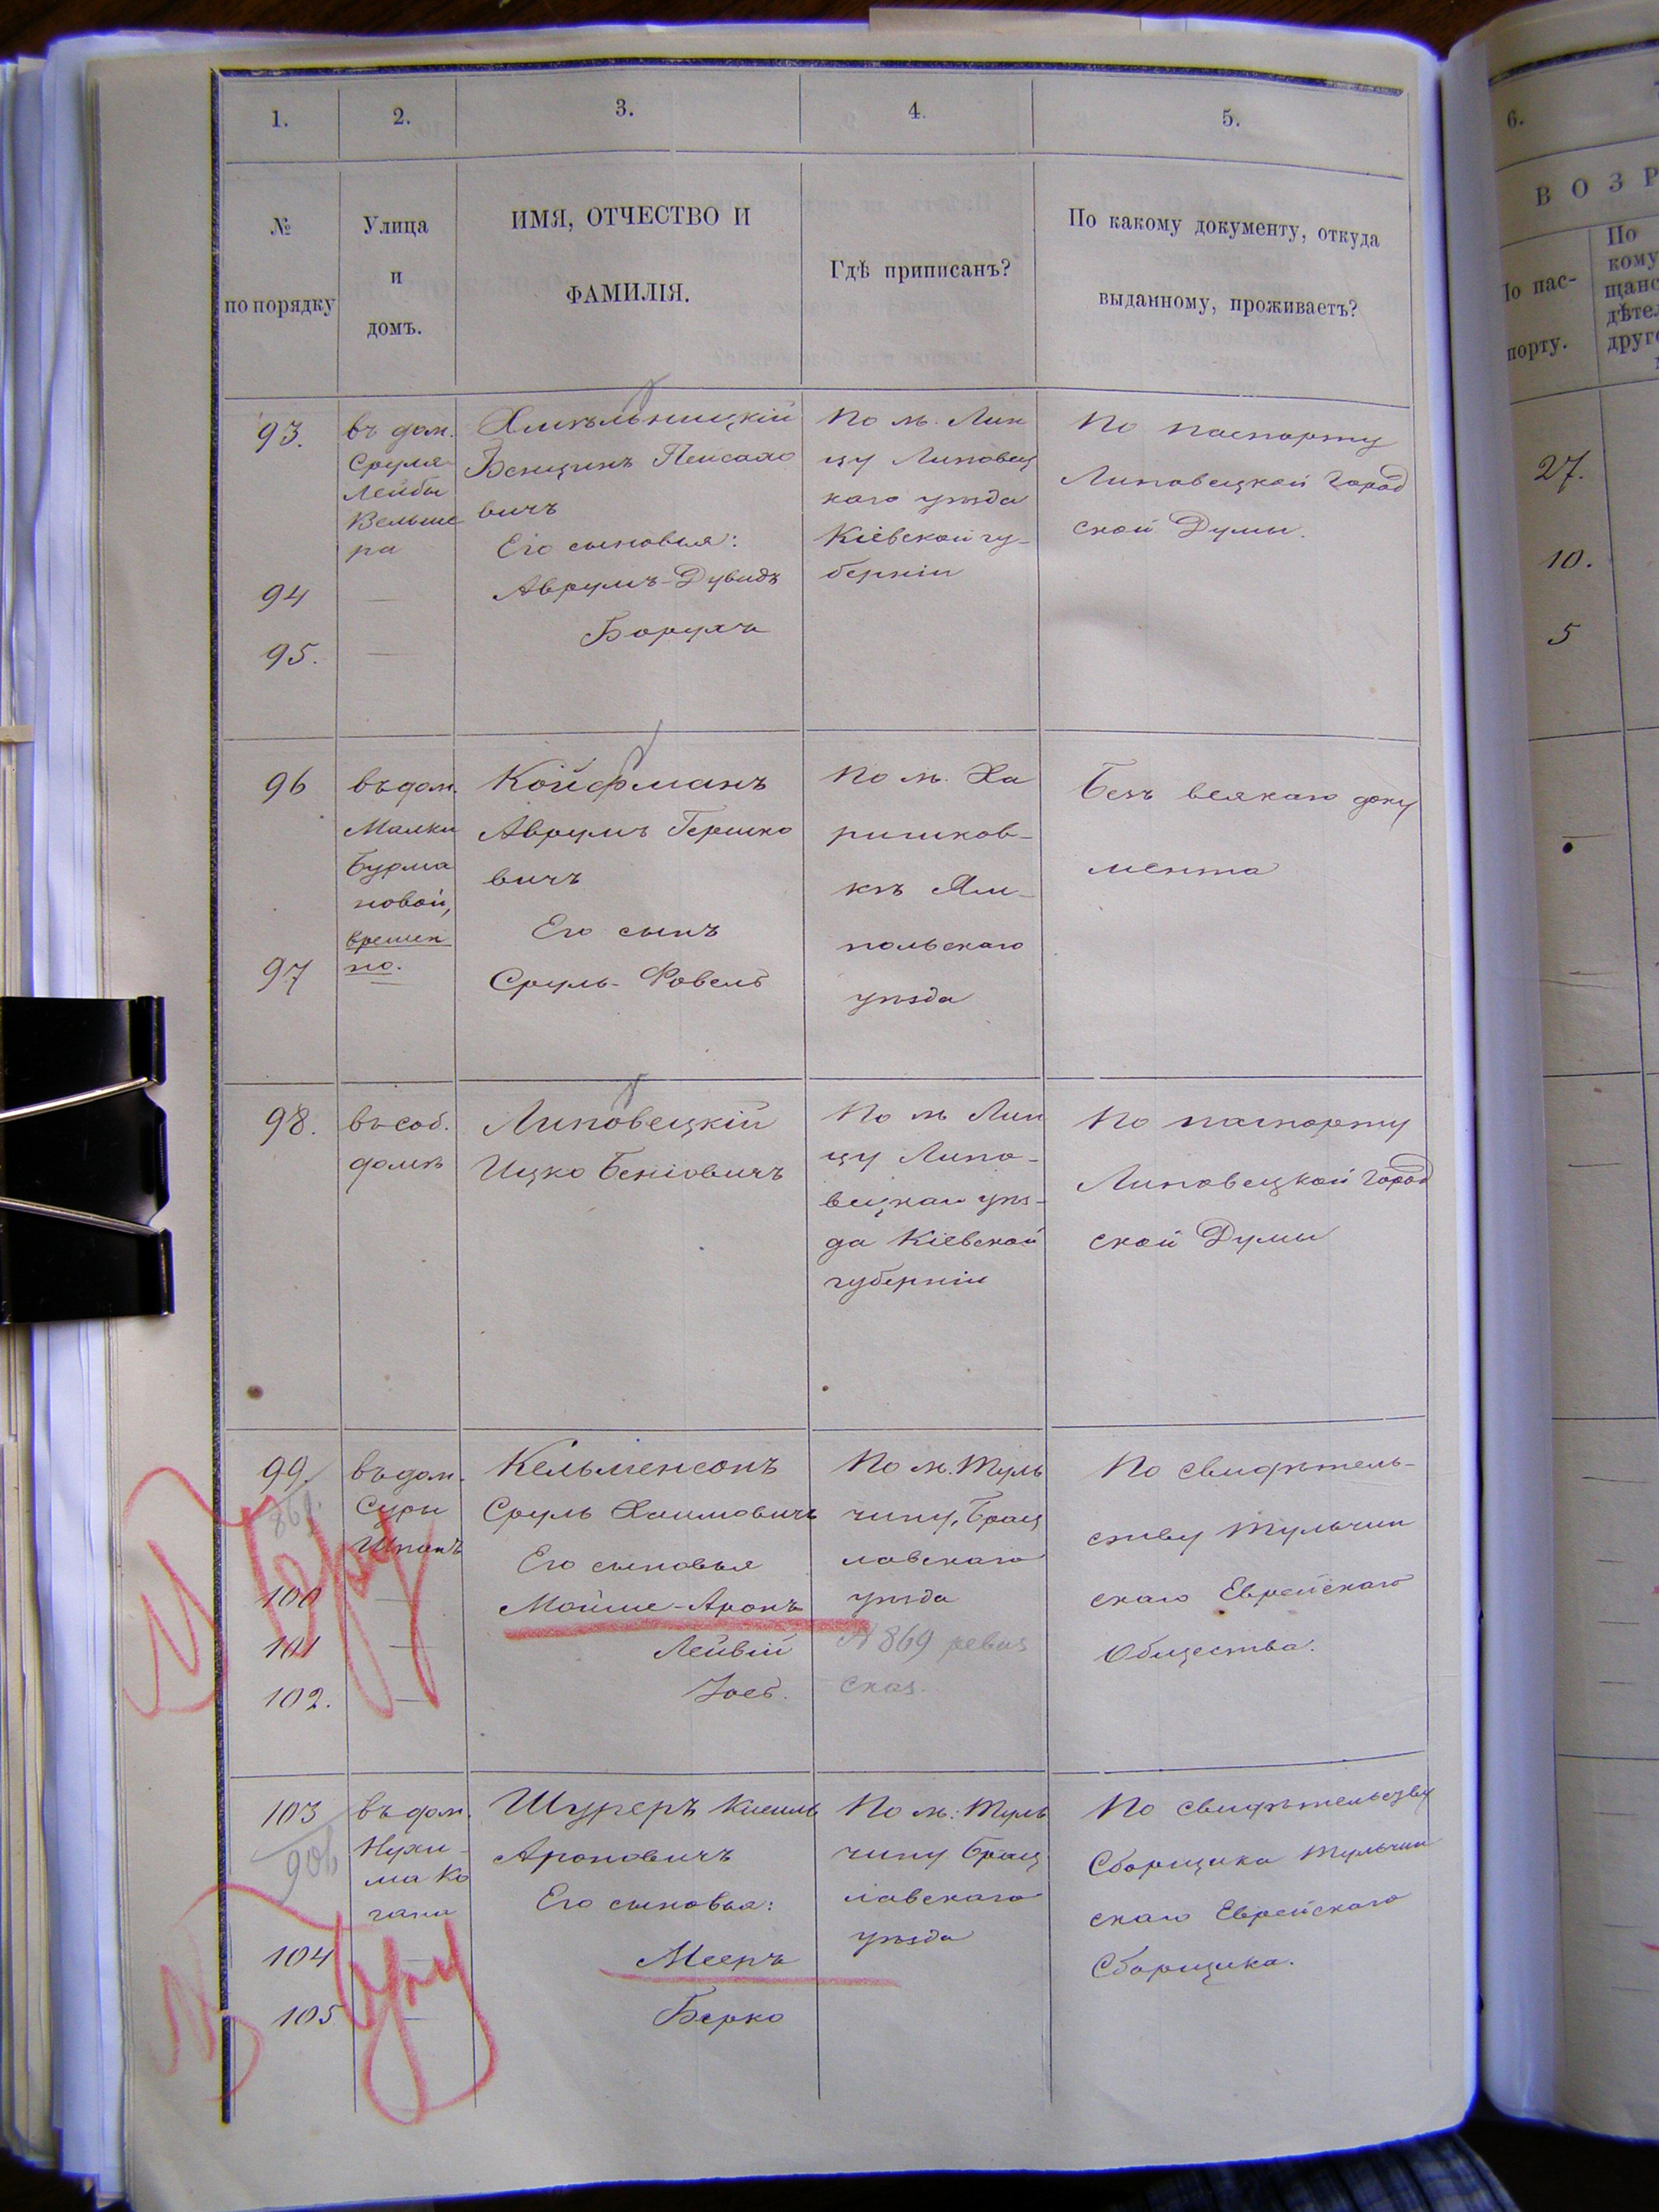 1. 2. 3. 4. 5.
№
по порядку
Улица
и
домъ.
ИМЯ, ОТЧЕСТВО И
ФАМИЛІЯ.
Гдѣ приписанъ?
По какому документу, откуда
выданному, проживаетъ?
93.
въ дом.
Сруля
Лейбы
Вельше
ра
Хмѣльницкій
Бенционъ Пейсахо
вичъ
Его сыновья:
По м. Лин
цу Липовец
каго уѣзда
Кіевской гу-
берніи
По паспорту
Липовецкой Город
ской Думы.
94
—
Аврумъ-Дувидъ
95.
—
Борухъ
96
въ дом.
Малки
Бурма
новой,
времен
но.
Койфманъ
Аврумъ Гершко
вичъ
Его сынъ
По м. Ха
ришков-
кѣ Ям-
польскаго
уѣзда
Безъ всякаго доку
мента
97
Сруль-Фовель
98.
въ соб.
домѣ
Липовецкій
Ицко Беніовичъ
По м Лин
цу Липо-
вецкаго уѣз-
да Кіевской
губерніи
По паспорту
Липовецкой Город
ской Думы
99.
869.
въ дом.
Суры
Шпакъ
Кельменсонъ
Сруль Хаимовичъ
Его сыновья
По м. Туль
чину, Брац
лавскаго
уѣзда
№ 869 ревиз
сказ.
По свидѣтель-
ству Тульчин
скаго Еврейскаго
Общества.
100
—
Мойше-Аронъ
101
—
Лейвій
102.
—
Іось.
103
906
въ дом.
Нухи-
ма Ко
гана
Шугеръ Кисиль
Ароновичъ
Его сыновья:
По м: Туль
чину Брац
лавскаго
уѣзда
По свидѣтельству
Сборщика Тульчин
скаго Еврейскаго
Сборщика.
104
—
Мееръ
105
—
Берко
6.
ВОЗР
По пас-
порту.
По
кому
щанс
дѣтел
друго
27.
10.
5
—